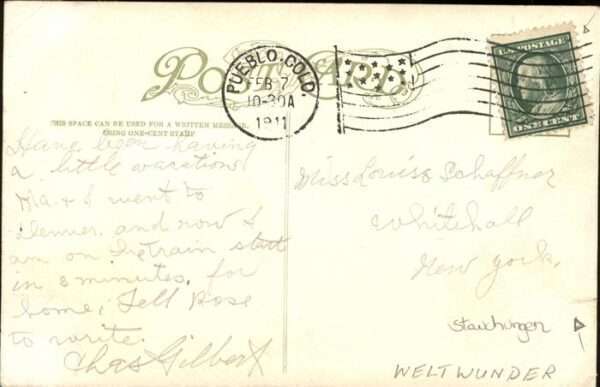 POST CARD
PUEBLO, COLO.
FEB 7
10-30A
1911
U.S. POSTAGE
ONE CENT
THIS SPACE CAN BE USED FOR A WRITTEN MESSAGE,
USING ONE-CENT STAMP
Have been having
a little vacation
Ma & I went to
Denver and now I
am on the train start
in 8 minutes. for
home, Tell Rose
to write.
Chas Gilbert
Miss Louise Schaffner
Whitehall
New York.
Stauchungen
WELTWUNDER